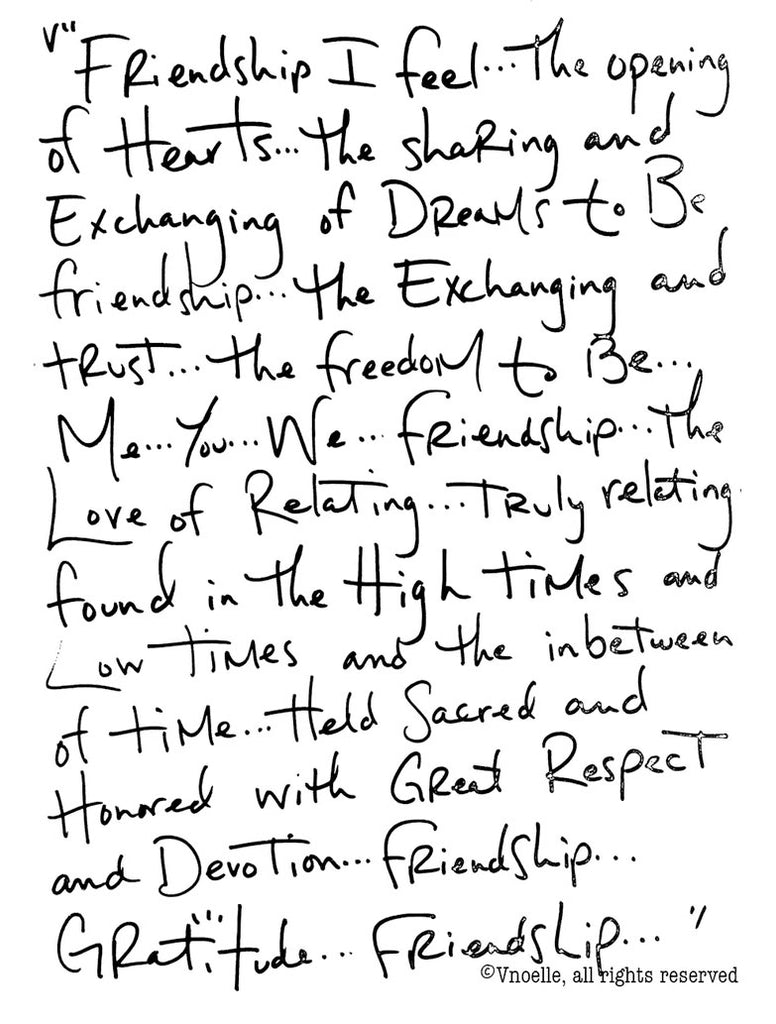 V" "Friendship I feel...The opening
of Hearts...the sharing and
Exchanging of Dreams to Be
friendship...the Exchanging and
trust...the freedom to Be...
Me...You...We...friendship...the
Love of Relating...Truly relating
found in the High times and
Low Times and the inbetween
of time...Held Sacred and
Honored with Great Respect
and Devotion...friendship...
Gratitude...Friendship..."
©Vnoelle, all rights reserved